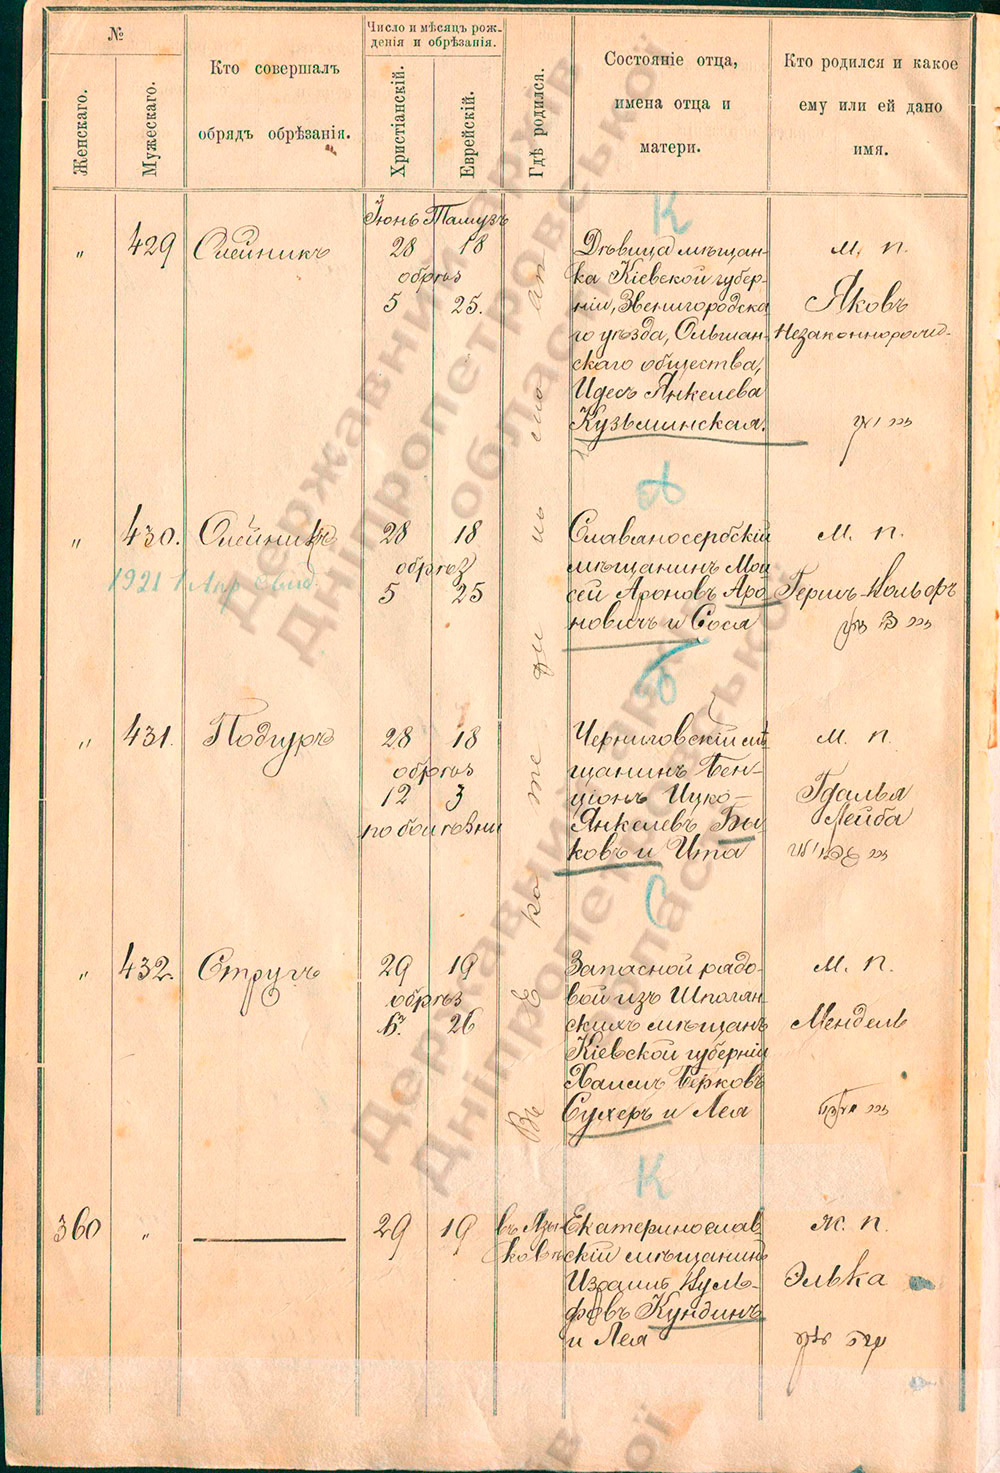 №
Женскаго.
Мужескаго.
Кто совершалъ
обрядъ обрѣзанія.
Число и мѣсяцъ рож-
денія и обрѣзанія.
Христіанскій.
Еврейскій.
Гдѣ родился.
Состояніе отца,
имена отца и
матери.
Кто родился и какое
ему или ей дано
имя.
Въ Екатеринославѣ
Іюнь Тамузъ
" 429 Олейникъ 28 18
обрѣз
5 25.
К
Дѣвица мѣщан-
ка Кіевской губер-
ніи, Звенигородска
го уѣзда, Ольшан-
скаго общества,
Идесъ Янкелева
Кузьминская.
м. п.
Яковъ
Незаконнорожд-
" 430. Олейникъ 28 18
обрѣз
5 25
1921 1 Апр
Славяносербскій
мѣщанинъ Мои
сей Ароновъ Аро
новичъ и Сося
м. п.
Герш-Вольфъ
" 431. Подгуръ 28 18
обрѣз
12 3
по болѣзни
Б
Черниговскій мѣ
щанинъ Бен-
ціонъ Ицко-
Янкелевъ Бы
ковъ и Ита
м. п.
Гдалья
Лейба
" 432. Стругъ 29 19
обрѣз
26
С
Запасной рядо-
вой изъ Шполян
скихъ мѣщанъ
Кіевской губерніи
Хаимъ Берковъ
Сухеръ и Лея
м. п.
Мендель
360 " 29 19
въ Язы-
ковѣ
К
Екатеринослав
скій мѣщанинъ
Израиль Вуль-
фовъ Кундинъ
и Лея
ж. п.
Элька
Державний архів
Дніпропетровської
області
Державний архів
Дніпропетровської
області